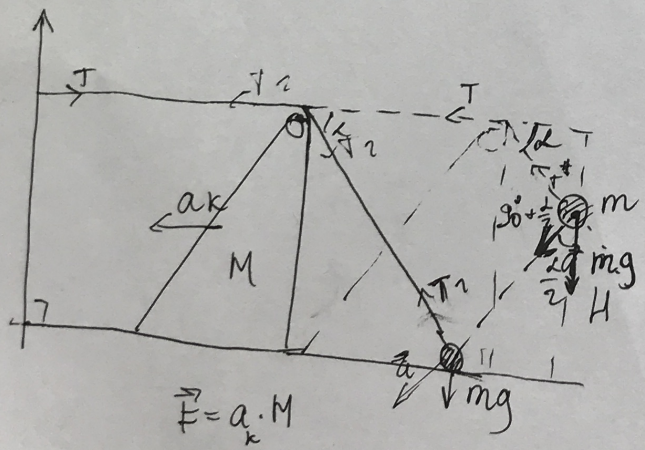 T
T₂
T
α
T₂
α
aₖ
90°+α/2
m
M
α/2
mg
H
T₂
a
mg
F⃗ = aₖ · M